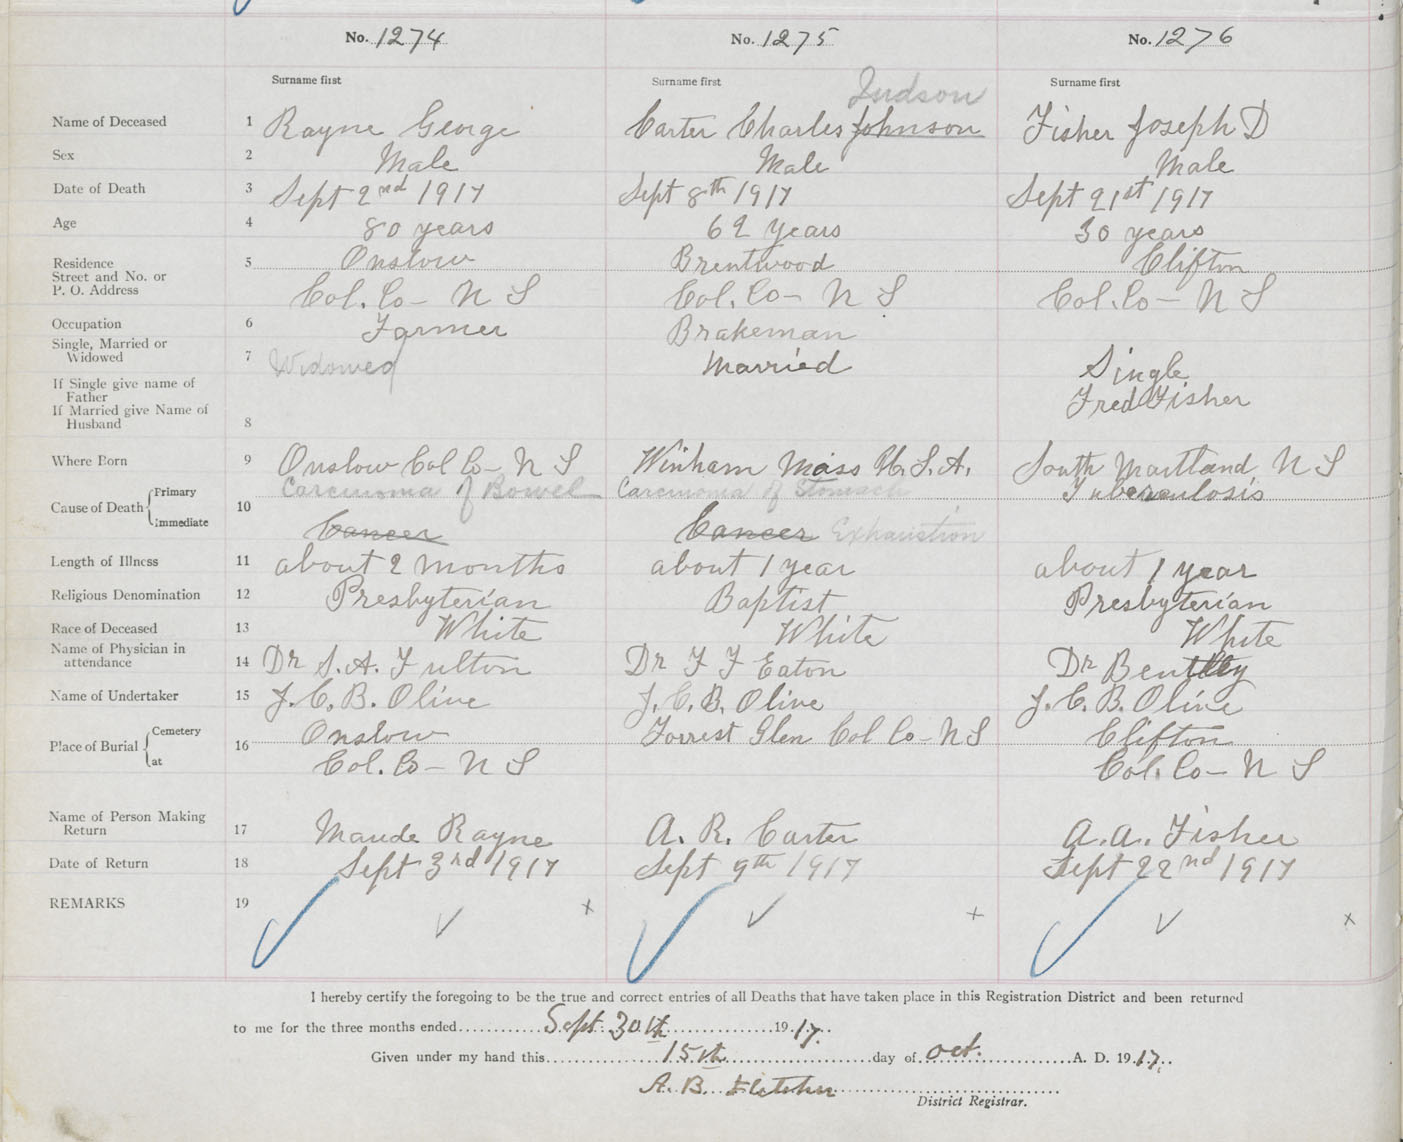 No. 1274 No. 1275 No. 1276
Surname first Surname first Surname first
Judson
Name of Deceased 1 Rayne George Carter Charles Johnson Fisher Joseph D
Sex 2 Male Male Male
Date of Death 3 Sept 2nd 1917 Sept 8th 1917 Sept 21st 1917
Age 4 80 years 62 years 30 years
Residence 5 Onslow Brentwood Clifton
Street and No. or
P. O. Address Col. Co - N S Col. Co - N S Col. Co - N S
Occupation 6 Farmer Brakeman
Single, Married or
Widowed 7 Widowed Married Single
If Single give name of
Father Fred Fisher
If Married give Name of
Husband 8
Where Born 9 Onslow Col Co - N S Winham Mass U. S. A. South Maitland N S
Cause of Death Primary Carcinoma of Bowel Carcinoma of Stomach Tuberculosis
10
Immediate Cancer Cancer Exhaustion
Length of Illness 11 about 2 months about 1 year about 1 year
Religious Denomination 12 Presbyterian Baptist Presbyterian
Race of Deceased 13 White White White
Name of Physician in
attendance 14 Dr S. A. Fulton Dr F F Eaton Dr Bentley
Name of Undertaker 15 J. C. B. Olive J. C. B. Olive J. C. B. Olive
Place of Burial Cemetery 16 Onslow Forrest Glen Col Co - N S Clifton
at Col. Co - N S Col. Co - N S
Name of Person Making
Return 17 Maude Rayne A. R. Carter A. A. Fisher
Date of Return 18 Sept 3rd 1917 Sept 9th 1917 Sept 22nd 1917
REMARKS 19 ✓ ✓ x ✓ ✓ x ✓ ✓ x
I hereby certify the foregoing to be the true and correct entries of all Deaths that have taken place in this Registration District and been returned
to me for the three months ended Sept 30th 1917.
Given under my hand this 15th day of Oct. A. D. 1917.
A. B. Fletcher
District Registrar.